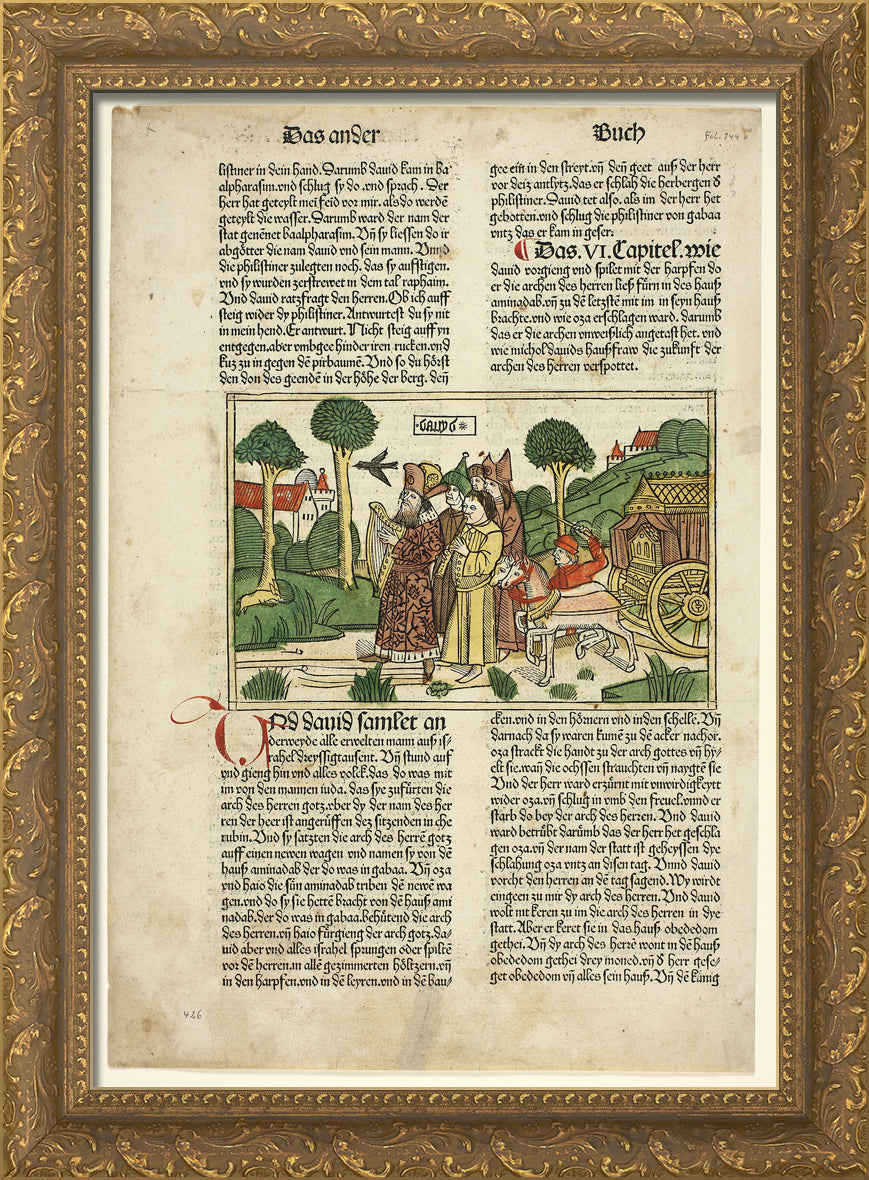 Das ander
Buch
Fol. 144
listiner in dein hand. Darumb dauid kam in ba
alpharasim. vnd schlug sy do. vnd sprach. Der
herr hat geteylt mei feid vor mir. als do werdē
geteylt die wasser. Darumb ward der nam der
stat genēnet baalpharasim. Vn̄ sy liessen do ir
abgötter die nam dauid vnd sein mann. Vnnd
die philistiner zulegten noch. das sy auffstigen.
vnd sy wurden zerstrewet in dem tal raphaim.
Vnd dauid ratzfragt den herren. Ob ich auff
steig wider dy philistiner. Antwurtest du sy nit
in mein hend. Er antwurt. Nicht steig auff yn
entgegen. aber vmbgee hinder iren rucken. vnd
kuz zu in gegen dē pirbaumē. Vnd so du hörst
den don des geendē in der höhe der berg. deñ
gee ein in den streyt. vn̄ deñ geet auß der herr
vor deiz antlytz. das er schlah die herbergen d̕
philistiner. Dauid tet also. als im der herr het
gebotten. vnd schlug die philistiner von gabaa
vntz das er kam in geser.
Das. VI. Capitel. wie
dauid vorgieng vnd spilet mit der harpfen do
er die archen des herren ließ fürn in des hauß
aminadab. vn̄ zu dē letzstē mit im in seyn hauß
brachte. vnd wie oza erschlagen ward. darumb
das er die archen vnweißlich angetast het. vnd
wie michol dauids haußfraw die zukunft der
archen des herren verspottet.
DAUID
VNd dauid samlet an
derweyde alle erwelten mann auß is/
rahel dreyssigtausent. Vn̄ stund auf
vnd gieng hin vnd alles volck. das do was mit
im von den mannen iuda. das sye zufürten die
arch des herren gotz. vber dy der nam des her
ren der heer ist angerüffen dez sitzenden in che
rubin. Vnd sy satzten die arch des herrē gotz
auff einen newen wagen vnd namen sy von dē
hauß aminadab der do was in gabaa. Vn̄ oza
vnd haio die sün aminadab triben dē newē wa
gen. vnd do sy sie hettē bracht von dē hauß ami
nadab. der do was in gabaa. behütend die arch
des herren. vn̄ haio fürgieng der arch gotz. da/
uid aber vnd alles israhel sprungen oder spiltē
vor dē herren. in allē gezimmerten höltzern. vn̄
in den harpfen. vnd in dē leyren. vnd in dē bau/
cken. vnd in den hörnern vnd in den schellē. Vn̄
darnach da sy waren kumē zu dē acker nachor.
oza strackt die handt zu der arch gottes vn̄ hy/
elt sie. wañ die ochssen strauchten vn̄ naygtē sie
Vnd der herr ward erzürnt mit vnwirdigkeytt
wider oza. vn̄ schlug in vmb den freuel. vnnd er
starb do bey der arch des herren. Vnd dauid
ward betrübt darūmb das der herr het geschla
gen oza. vn̄ der nam der statt ist geheyssen dye
schlahung oza vntz an disen tag. Vnnd dauid
vorcht den herren an dē tag sagend. Wy wirdt
eingeen zu mir dy arch des herren. Vnd dauid
wolt nit keren zu im die arch des herren in dye
statt. Aber er keret sie in das hauß obededom
gethei. Vn̄ dy arch des herrē wont in dē hauß
obededom gethei drey moned. vn̄ d̕ herr gese/
get obededom vn̄ alles sein hauß. Vn̄ dē künig
426